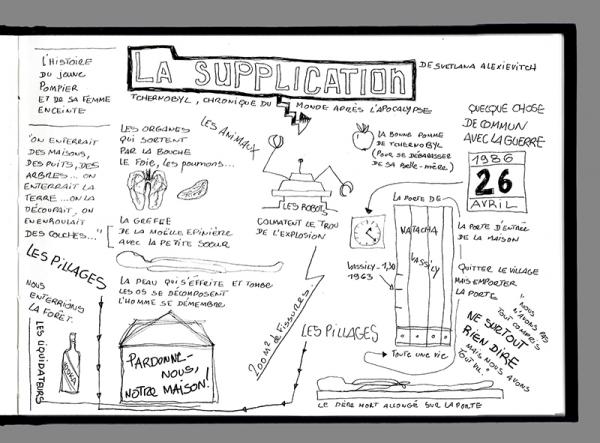 L'HISTOIRE
DU JEUNE
POMPIER
ET DE SA FEMME
ENCEINTE
LA SUPPLICATION
DE SVETLANA ALEXIEVITCH
TCHERNOBYL, CHRONIQUE DU MONDE APRÈS L'APOCALYPSE
"ON ENTERRAIT
DES MAISONS,
DES PUITS, DES
ARBRES... ON
ENTERRAIT LA
TERRE... ON LA
DÉCOUPAIT, ON
ENROULAIT
DES COUCHES..."
LES ORGANES
QUI SORTENT
PAR LA BOUCHE
LE FOIE, LES POUMONS...
LES ANIMAUX
LES ROBOTS
COLMATENT LE TROU
DE L'EXPLOSION
LA BONNE POMME
DE TCHERNOBYL
(POUR SE DÉBARASSER
DE SA BELLE-MÈRE)
QUELQUE CHOSE
DE COMMUN
AVEC LA GUERRE
1986
26
AVRIL
LA GREFFE
DE LA MOËLLE EPINIÈRE
AVEC LA PETITE SOEUR
LA PEAU QUI S'EFFRITE ET TOMBE
LES OS SE DÉCOMPOSENT
L'HOMME SE DÉMEMBRE
LES PILLAGES
NOUS
ENTERRIONS
LA FORÊT.
LES LIQUIDATEURS
VODKA
PARDONNE-
NOUS,
NOTRE MAISON!
200 M² DE FISSURES.
LES PILLAGES
LA PORTE DE
NATACHA
VASSILY
VASSILY - 1,30
1963
TOUTE UNE VIE
LA PORTE D'ENTRÉE
DE LA MAISON
QUITTER LE VILLAGE
MAIS EMPORTER
LA PORTE
"NOUS
N'AVONS PAS
TOUT COMPRIS
MAIS NOUS AVONS
TOUT VU."
NE SURTOUT
RIEN DIRE
LE PÈRE MORT ALLONGÉ SUR LA PORTE